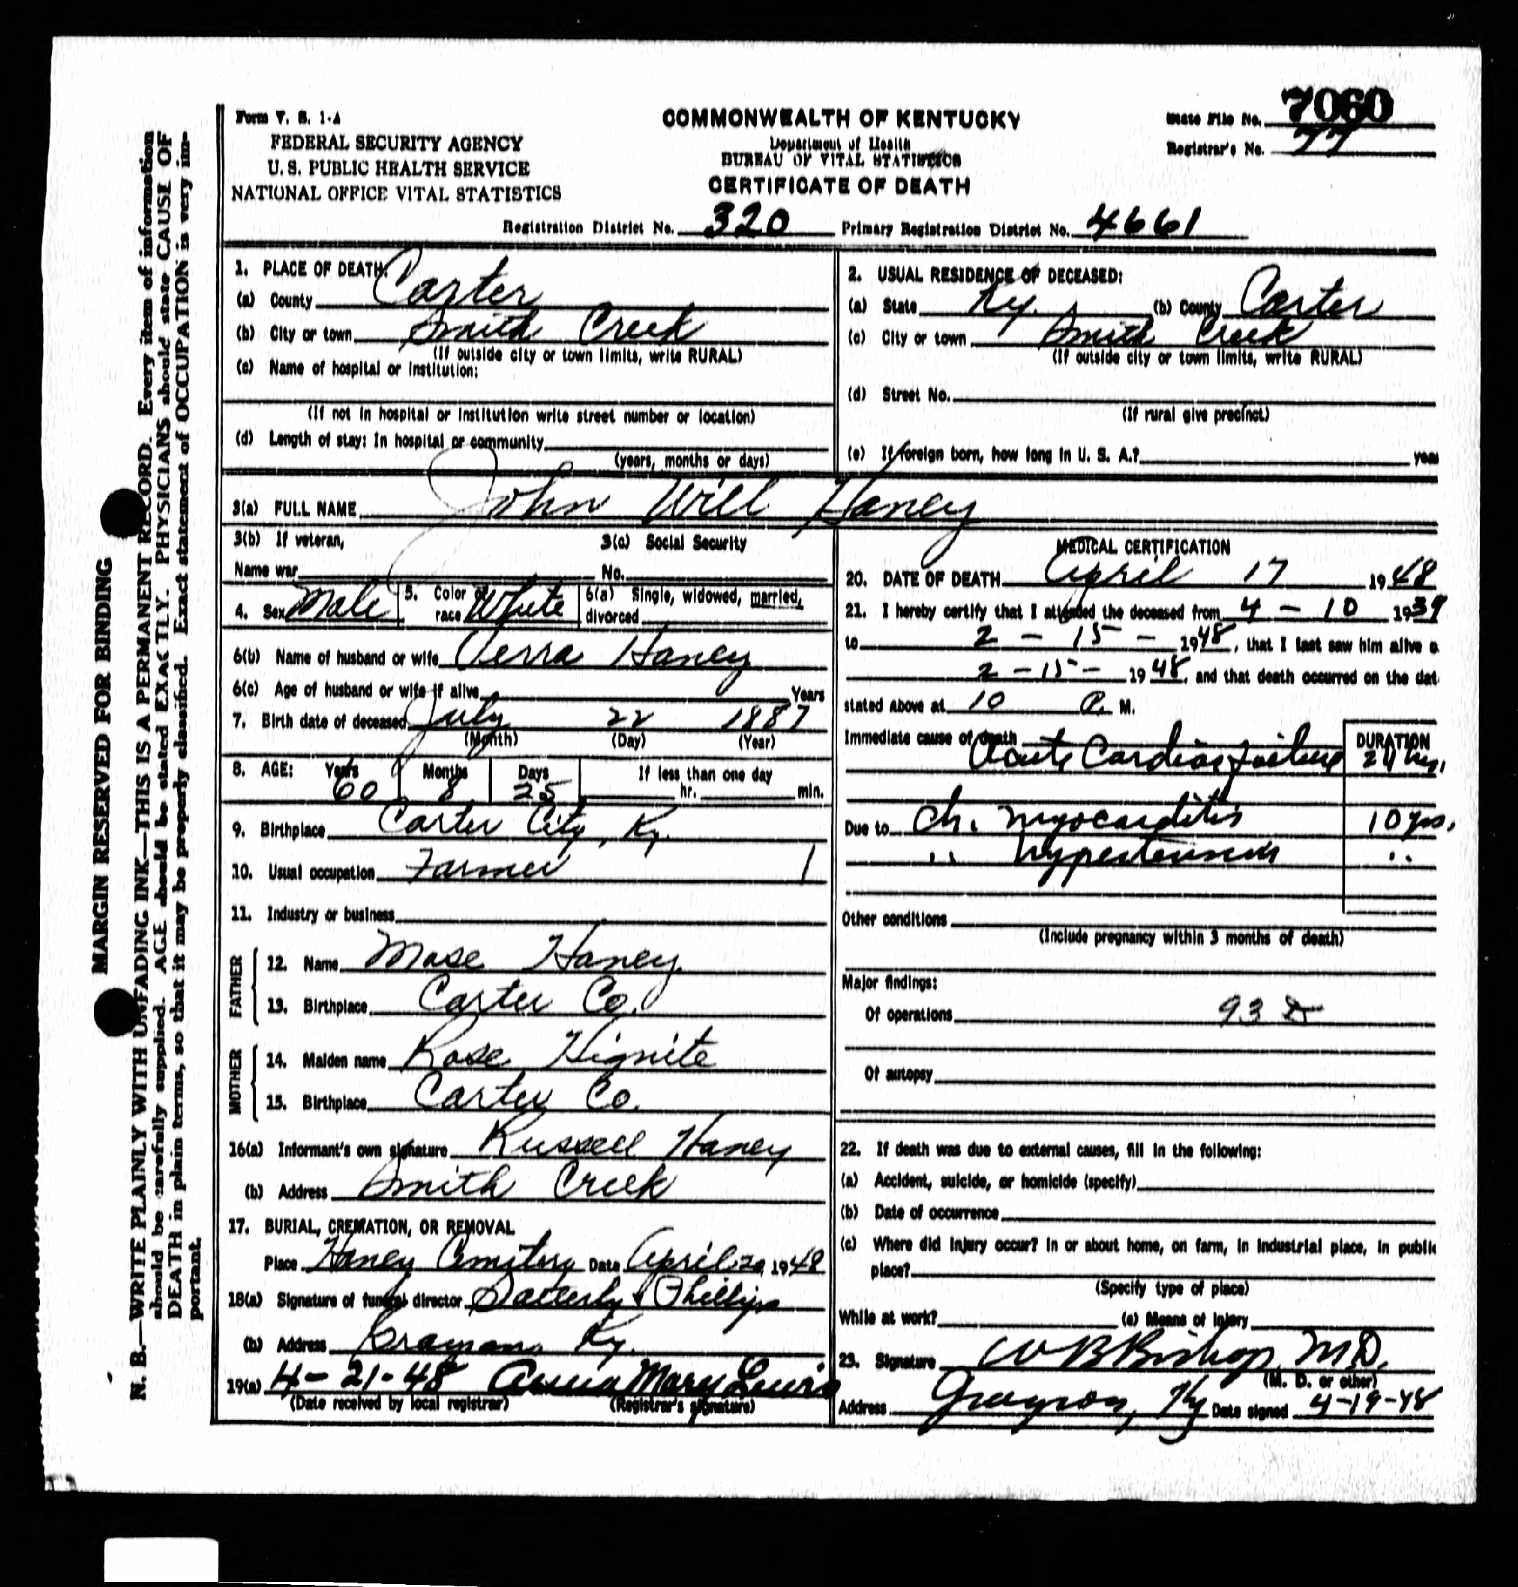 Form V. S. 1-A
FEDERAL SECURITY AGENCY
U. S. PUBLIC HEALTH SERVICE
NATIONAL OFFICE VITAL STATISTICS
COMMONWEALTH OF KENTUCKY
Department of Health
BUREAU OF VITAL STATISTICS
CERTIFICATE OF DEATH
State File No. 7060
Registrar's No. 77
Registration District No. 320 Primary Registration District No. 4661
MARGIN RESERVED FOR BINDING
N. B.—WRITE PLAINLY WITH UNFADING INK—THIS IS A PERMANENT RECORD. Every item of information
should be carefully supplied. AGE should be stated EXACTLY. PHYSICIANS should state CAUSE OF
DEATH in plain terms, so that it may be properly classified. Exact statement of OCCUPATION is very im-
portant.
1. PLACE OF DEATH:
(a) County Carter
(b) City or town Smith Creek
(If outside city or town limits, write RURAL)
(c) Name of hospital or institution:
(If not in hospital or institution write street number or location)
(d) Length of stay: In hospital or community
(years, months or days)
2. USUAL RESIDENCE OF DECEASED:
(a) State Ky. (b) County Carter
(c) City or town Smith Creek
(If outside city or town limits, write RURAL)
(d) Street No.
(If rural give precinct)
(e) If foreign born, how long in U. S. A.? year
3(a) FULL NAME John Will Haney
3(b) If veteran,
Name war
3(c) Social Security
No.
4. Sex Male
5. Color or
race White
6(a) Single, widowed, married,
divorced
6(b) Name of husband or wife Verra Haney
6(c) Age of husband or wife if alive Years
7. Birth date of deceased July 22 1887
(Month) (Day) (Year)
8. AGE: Years Months Days If less than one day
60 8 25 hr. min.
9. Birthplace Carter City, Ky.
10. Usual occupation Farmer 1
11. Industry or business
FATHER
12. Name Mose Haney
13. Birthplace Carter Co.
MOTHER
14. Maiden name Rose Hignite
15. Birthplace Carter Co.
16(a) Informant's own signature Russell Haney
(b) Address Smith Creek
17. BURIAL, CREMATION, OR REMOVAL
Place Haney Cemetery Date April 20, 1948
18(a) Signature of funeral director Satterly & Phillips
(b) Address Grayson, Ky.
19(a) 4-21-48 Anna Mary Lewis
(Date received by local registrar) (Registrar's signature)
MEDICAL CERTIFICATION
20. DATE OF DEATH April 17 1948
21. I hereby certify that I attended the deceased from 4-10 1939
to 2-15- 1948, that I last saw him alive o
2-15- 1948, and that death occurred on the dat
stated above at 10 P. M.
Immediate cause of death Acute Cardiac failure
DURATION
24 hrs.
Due to Ch. myocarditis 10 yrs.
" hypertension "
Other conditions
(Include pregnancy within 3 months of death)
Major findings:
Of operations 93 D
Of autopsy
22. If death was due to external causes, fill in the following:
(a) Accident, suicide, or homicide (specify)
(b) Date of occurrence
(c) Where did injury occur? In or about home, on farm, in industrial place, in public
place?
(Specify type of place)
While at work? (e) Means of injury
23. Signature W B Bishop, M.D.
(M. D. or other)
Address Grayson, Ky Date signed 4-19-48